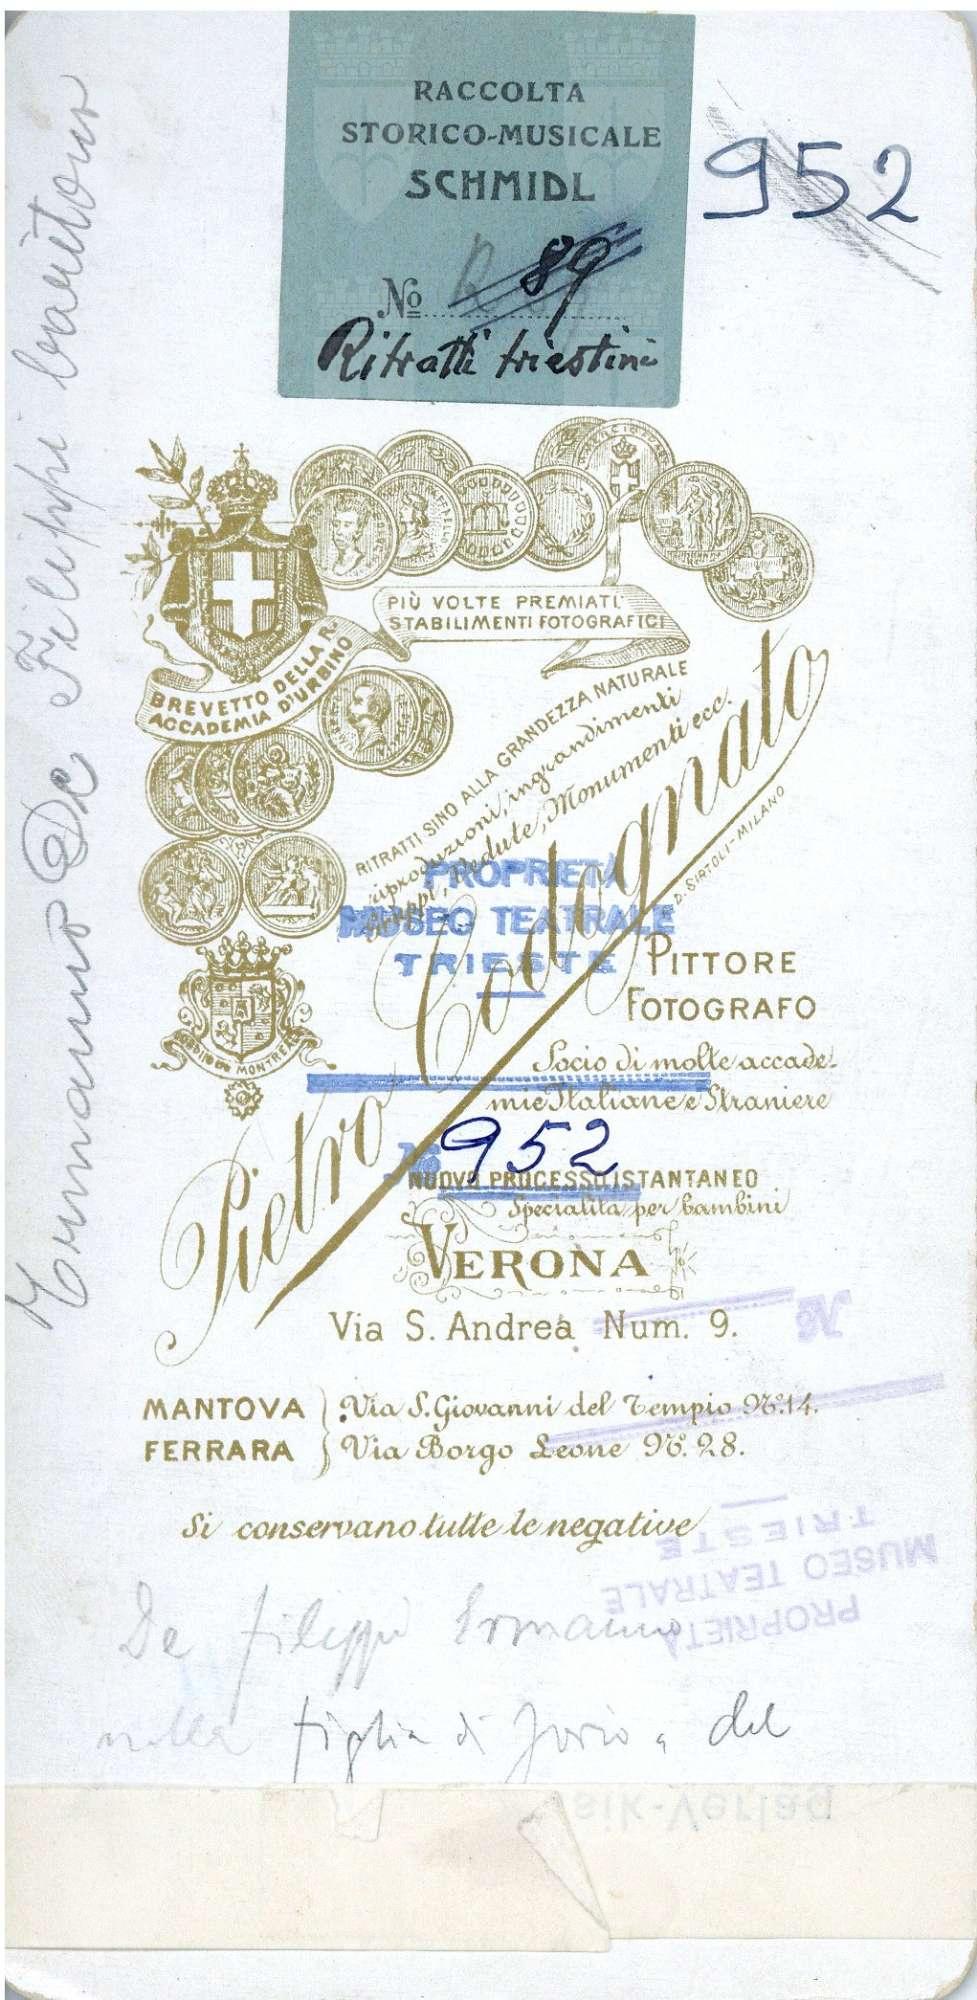 RACCOLTA
STORICO-MUSICALE
SCHMIDL
No 89
Ritratti triestini
952
Ermanno De Filippi baritono
PIÙ VOLTE PREMIATI
STABILIMENTI FOTOGRAFICI
BREVETTO DELLA R.
ACCADEMIA D'URBINO
RITRATTI SINO ALLA GRANDEZZA NATURALE
riproduzioni, ingrandimenti
Gruppi, Vedute, Monumenti ecc.
Pietro Codognato
D. SIRTOLI-MILANO
PROPRIETÀ
MUSEO TEATRALE
TRIESTE
PITTORE
FOTOGRAFO
Socio di molte accade-
mie Italiane e Straniere
No 952
NUOVO PROCESSO ISTANTANEO
Specialità per bambini
VERONA
Via S. Andrea Num. 9.
No
MANTOVA } Via S. Giovanni del Tempio No. 14.
FERRARA } Via Borgo Leone No. 28.
Si conservano tutte le negative
PROPRIETÀ
MUSEO TEATRALE
TRIESTE
De Filippi Ermanno
nella figlia di Jorio, del
sik-Verlag